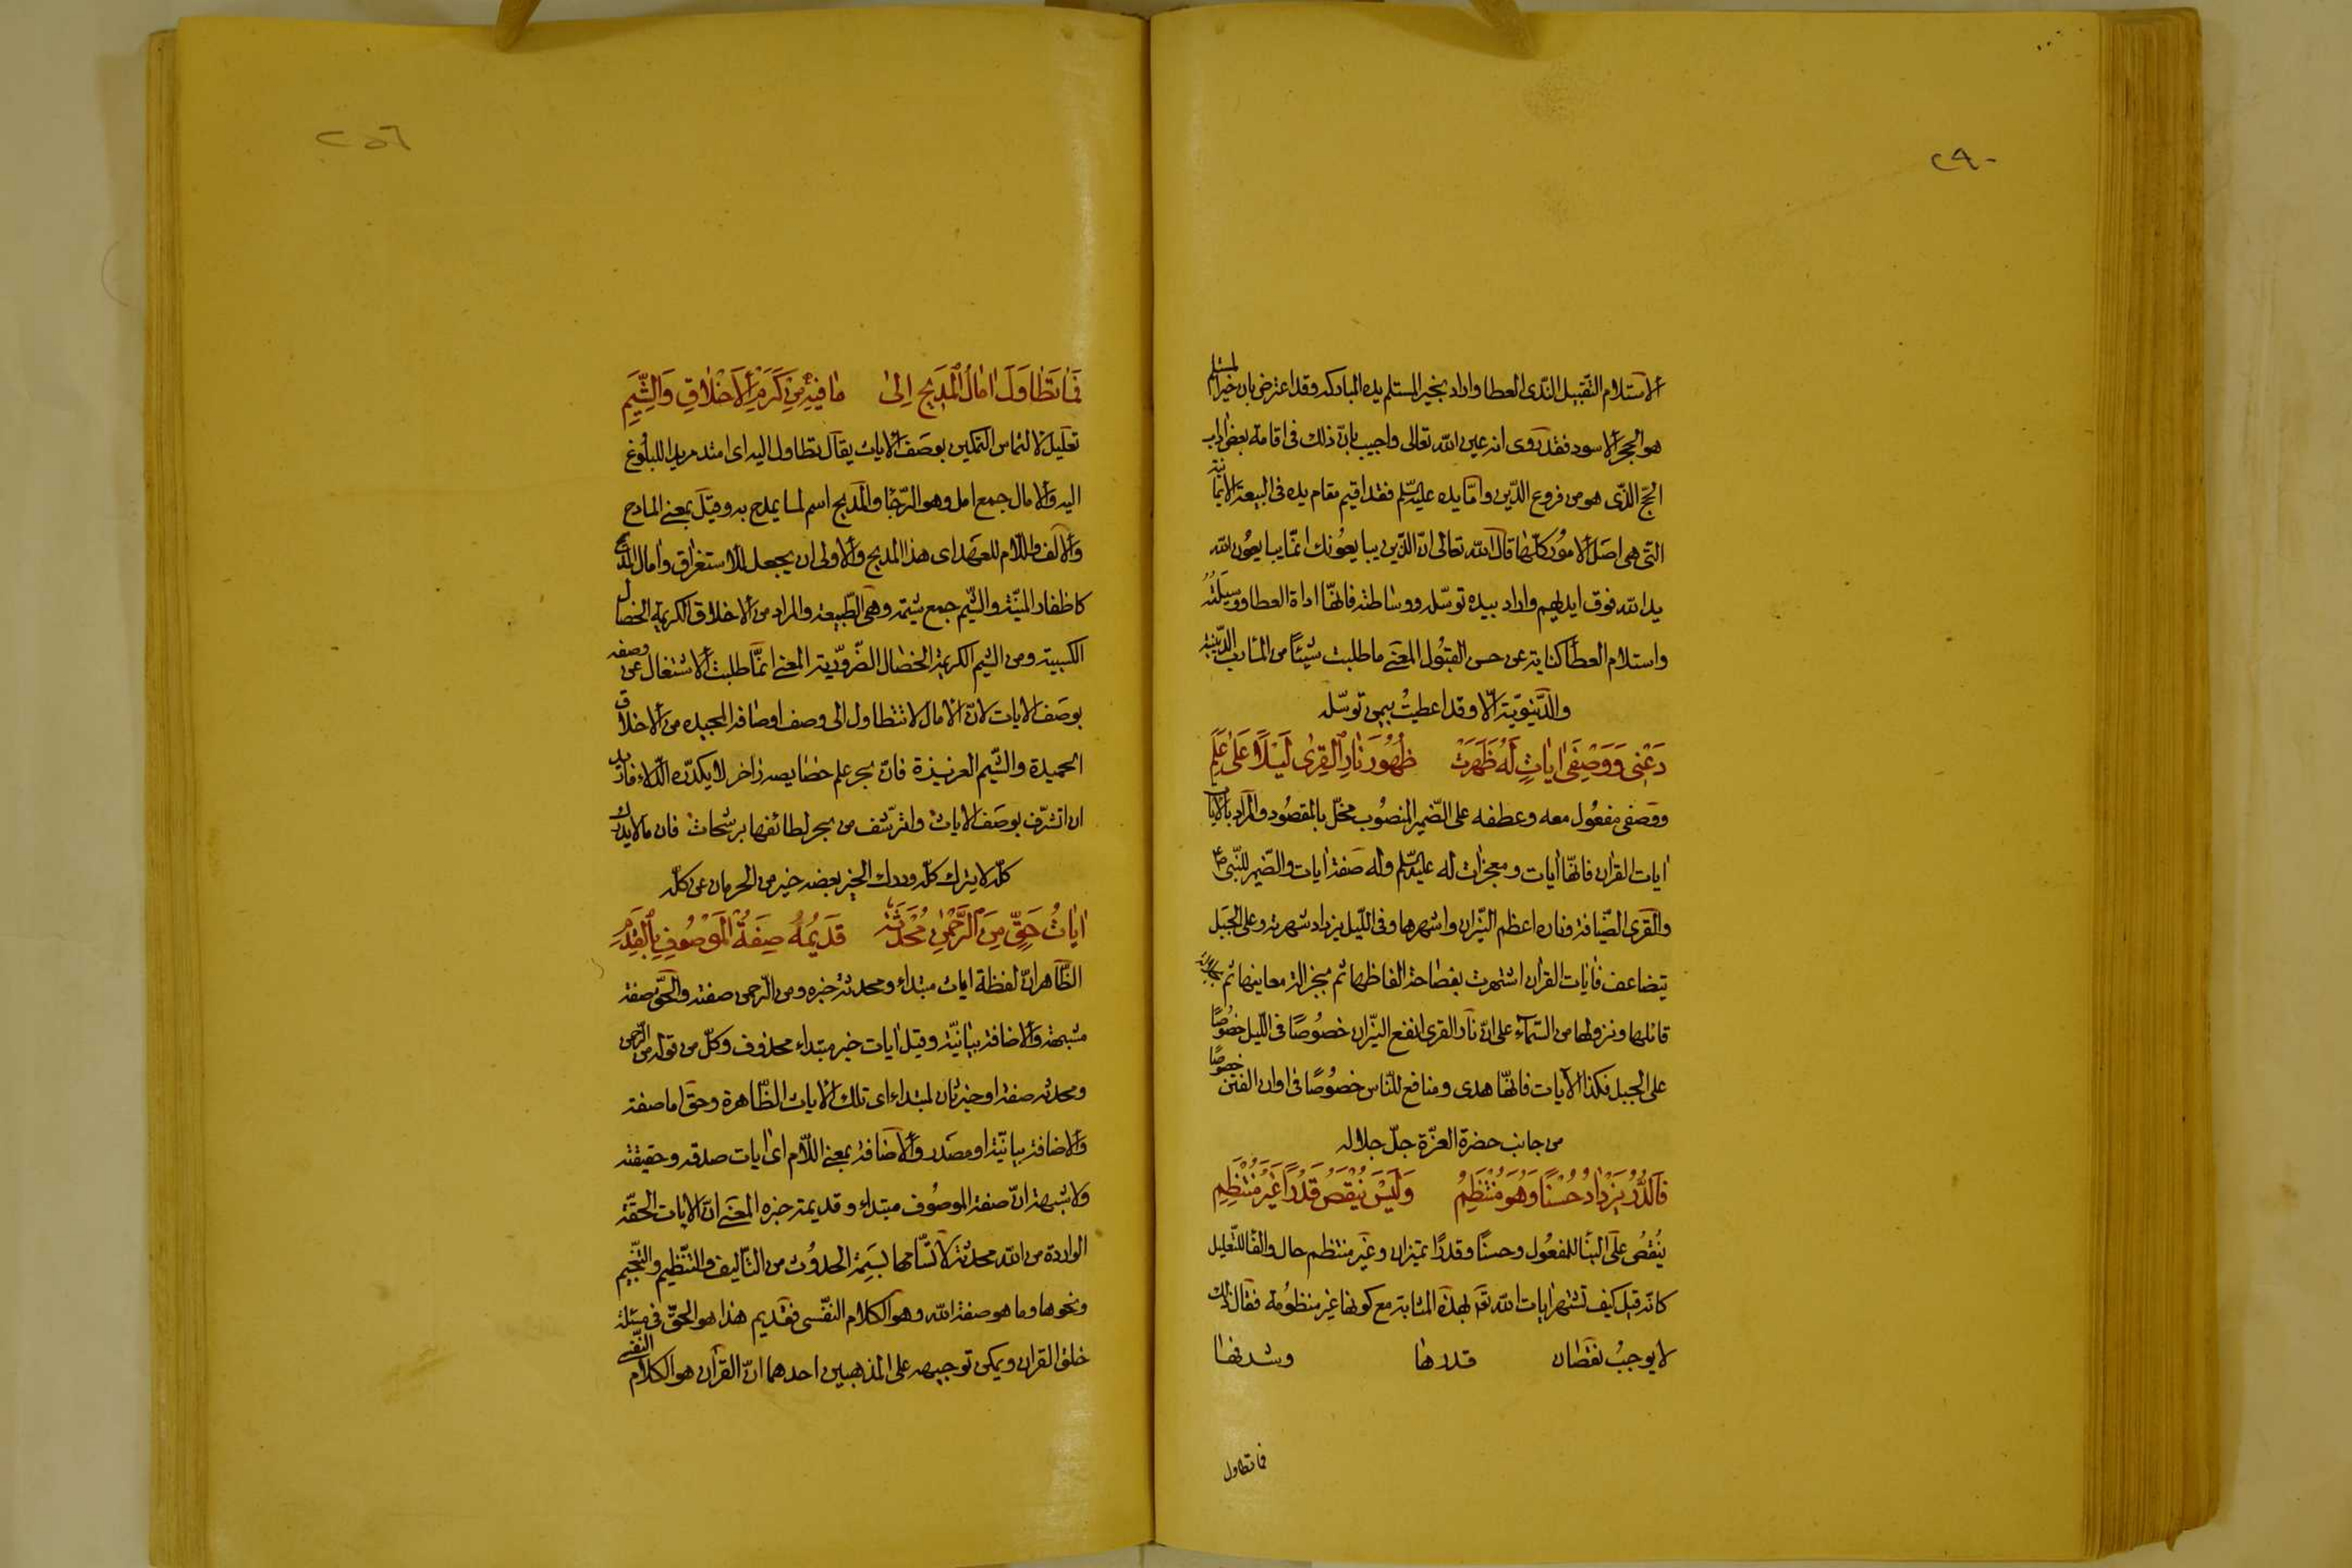 ٢٩٠
الاستلام التقبيل الندى العطا واراد بخير المستلم يده المباركه وقد اعترض بان خير المستلم
هو الحجر الاسود فقد روى انه عين الله تعالى واجيب بانّ ذلك فى اقامة بعض اداب
الحجّ الذّى هو من فروع الدّين وامّا يده عليه السّلم فقد اقيم مقام يده فى البيعة الايمانية
التّى هى اصَل الامور كلّها قال الله تعالى انّ الذّين يبايعُونك انمّا يبايعُون الله
يد الله فوق ايديهم واراد بيده توسّله ووساطته فانهّا اداة العطا ووسيَلتُهُ
واستلام العطا كناية عن حسن القبُول المعَنى ما طلبت شيئًا من المأرب الدّينية
والدّنيوّية الّا وقد اعطيتُ بيمن توسّله
دَعْنِى وَوَصْفِىَ اٰيَاتٍ لَهُ ظَهَرَتْ ظُهُوُرَ نٰارِ اْلقِرىٰ لَيْلًا عَلىٰ عَلَمِ
ووصَفى مفعُول معه وعطفه على الضّمير المنصُوب مخلّ بالمقصُود والمراد بالايات
ايات القران فانهّا ايات ومعجزات له عليه السّلم وله صَفة ايات والضّمير للنّبى ص
والقرى الضّيافة وناره اعظم النّيران واشهرها وفى اللّيل يزداد شهرته وعلى الجبَل
يتضاعف فايات القران اشتهرت بفصَاحة الفاظهاثم بجزالة معاينها ثم بجلالة
قائلها ونزولها من السّمآء على انّ نار القرى انفع النّيران خصُوصًا فى اللّيل خصُوصًا
على الجبل فكذا الآيات فانهّا هدى ومنافع للنّاس خصُوصًا فى اوان الفتن خصوصًا
من جانب حضرة العزّة جلّ جلاله
فَالدُّرُ يَزْدٰادُ حُسْنًا وَهُوَ مُنْتَظِمُ وَلَيْسَ يُنْقَصُ قَدْرًا غَيْرَ مُنْتَظِمِ
يُنْقَصُ علَى البنَا للمفعُول وحسنًا وقدرًا تميزان وغَير منتظم حال والفا للتعليل
كانّه قيل كيف تشتهر ايات الله تع بهذه المثابة مع كونها غير منظومة فقال ذلك
لا يوجبُ نقصَان قدرها وشرفها
فما تطاول
٢٥٦
فَمٰا تَطٰاوَلَ اٰمٰالُ اْلمَدِيجِ اِلىٰ مٰا فِيْهِ مِنْ كَرَمِ اْلاَخْلاٰقِ وَالشِّيَمِ
تعَليل لالتماس التمكين بوصَف الايات يقال تطاول اليه اى امتد مريدا للبلُوغ
اليه والامال جمع امل وهو الرّجا والمديح اسم لما يمدح به وقيَل بمعنى المادح
والالف واللّام للعهد اى هذا المديح والاولى ان يجعل للاستغراق وامال المديح
كاظفار المنيّة والشيم جمع شيمة وهى الطّبيعة والمراد من الاخلاق الكريمة الخصال
الكسبية ومن الشيم الكريمة الخصال الضّروّرية المعنى انمّا طلبت الاشتغال عن وصفه
بوصَف الايات لانّ الامال لا تتطاول الى وصف اوصافه المجيده من الاخلاق
الحميدة والشّيم العزيزة فانّ بحر علم خصايصه زاخر لا يكدّره الدّلاء فاريد
ان اتشّرف بوصَف الايات واترشّف من بحر لطائفها برشحات فان ما لا يدرك
كلّه لا يترك كلّه ودرك الخير بعضه خير من الحرمان عن كلّه
اٰيٰاتُ حَقٍّ مِنَ الرَّحْمٰنِ مُحْدَثَةٌ قَدِيمَةٌ صِفَةُ اْلمَوْصُوفِ بِالْقِدَمِ
الظّاهر انّ لفظة ايات مبتداء ومحدثة خبره ومن الرّحمن صفته والحقّ صفة
مشبهة والاضافة بيانيّة وقيل ايات خبر مبتداء محذوف وكلّ من قوله من الرّحمن
ومحدثة صفة او خبر ثان لمبتداء اى تلك الايات الظّاهرة وحقّ اما صفة
والاضافة بيانّية او مصَدر والاضافة بمعنى اللّام اى ايات صدقه وحقيقته
ولا شبهة انّ صفة الموصُوف مبتداء وقديمة خبره المعَنى انّ الايات الحقّة
الواردة من الله محدثة لاتّسامها بسَِمة الحدوُث من التّأليف والتنّظيم والتنّجيم
ونحوها وما هو صفة الله وهو الكلام النفّسى فقديم هذا هو الحقّ فى مسئلة
خلق القران ويمكن توجيهه على المذهبين احدهما انّ القرآن هو الكلام النفّسى